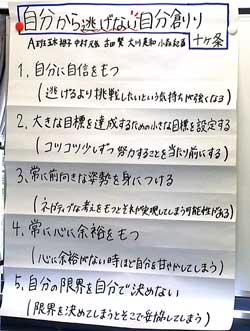 自分から逃げない自分創り
十ヶ条
1. 自分に自信をもつ
(逃げるより挑戦したいという気持ちが強くなる)
2. 大きな目標を達成するための小さな目標を設定する
(コツコツ少しずつ努力することを当たり前にする)
3. 常に前向きな姿勢を身につける
(ネガティブな考えをもつとそれが実現してしまう可能性がある)
4. 常に心に余裕をもつ
(心に余裕がない時ほど自分を甘やかしてしまう)
5. 自分の限界を自分で決めない
(限界を決めてしまうとそこで妥協してしまう)